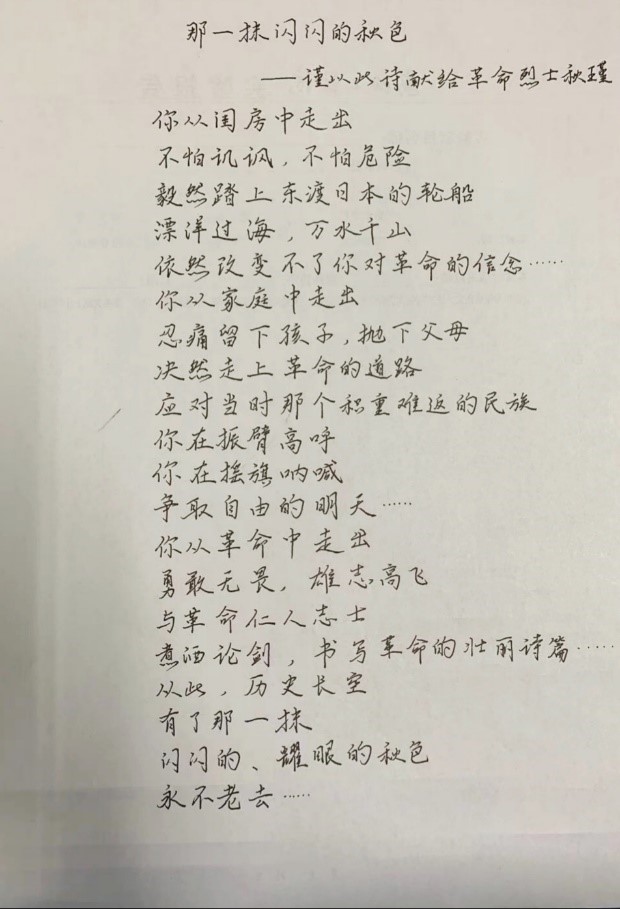 那一抹闪闪的秋色
——谨以此诗献给革命烈士秋瑾
你从闺房中走出
不怕讥讽，不怕危险
毅然踏上东渡日本的轮船
漂洋过海，万水千山
依然改变不了你对革命的信念……
你从家庭中走出
忍痛留下孩子，抛下父母
决然走上革命的道路
应对当时那个积重难返的民族
你在振臂高呼
你在摇旗呐喊
争取自由的明天……
你从革命中走出
勇敢无畏，雄志高飞
与革命仁人志士
煮酒论剑，书写革命的壮丽诗篇……
从此，历史长空
有了那一抹
闪闪的、耀眼的秋色
永不老去……